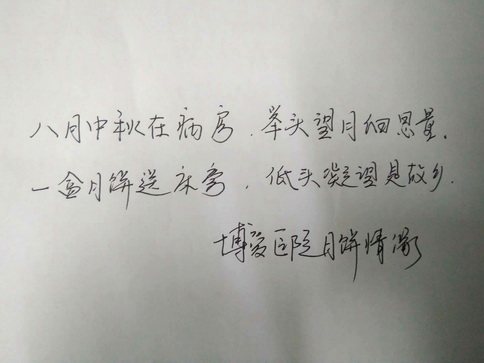 八月中秋在病房，举头望月细思量，
一盒月饼送床旁，低头凝望是故乡.
博爱医院月饼情缘